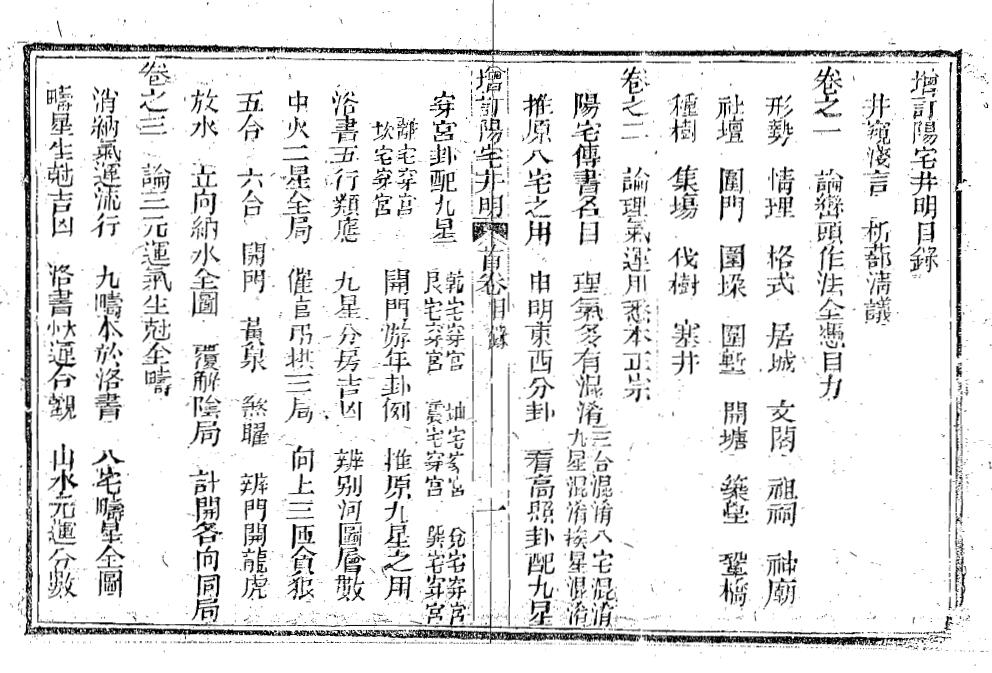 增訂陽宅井明目錄
井窺淺言　析蔀淸議
卷之一　論巒頭作法全憑目力
形勢　情理　格式　居城　文閣　祖祠　神廟
社壇　圍門　圍垜　圍塹　開塘　築壆　鞏橋
種樹　集塲　伐樹　塞井
卷之二　論理氣運用悉本正宗
陽宅傳書名目　理氣多有混淆　三合混淆　八宅混淆
九星混淆　挨星混淆
推原八宅之用　申明東西分卦　看高照卦配九星
增訂陽宅井明　首卷　目錄　一
穿宮卦配九星　乾宅穿宮　坤宅穿宮　兌宅穿宮
艮宅穿宮　震宅穿宮　巽宅穿宮
離宅穿宮
坎宅穿宮
開門游年卦例　推原九星之用
洛書五行類應　九星分房吉凶　辨别河圖層數
中火二星全局　催官吊拱三局　向上三匝貪狼
五合　六合　開門　黃泉　煞曜　辨門開龍虎
放水　立向納水全圖　覆解陰局　計開各向同局
卷之三　論三元運氣生尅全疇
消納氣運流行　九疇本於洛書　八宅疇星全圖
疇星生尅吉凶　洛書大運合觀　山水元運分數